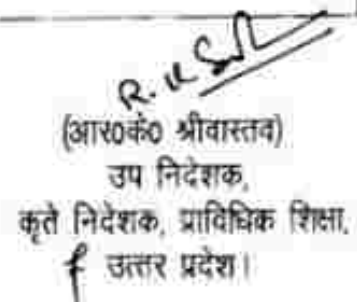 (आर०कं० श्रीवास्तव)
उप निदेशक,
कृते निदेशक, प्राविधिक शिक्षा,
उत्तर प्रदेश।